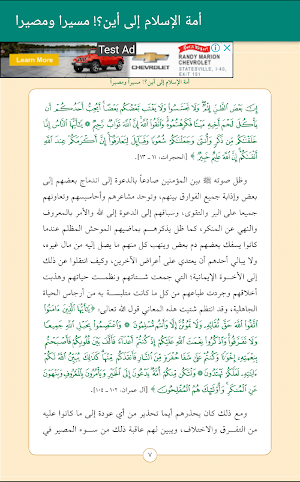 أمة الإسلام إلى أين؟! مسيرا ومصيرا
Test Ad
Learn More
CHEVROLET
RANDY MARION
CHEVROLET
STATESVILLE, I-40,
EXIT 151
أمة الإسلام إلى أين؟! مسيراً ومصيراً
إِنَّ بَعْضَ الظَّنِّ إِثْمٌ وَلَا تَجَسَّسُوا وَلَا يَغْتَب بَّعْضُكُم بَعْضًا أَيُحِبُّ أَحَدُكُمْ أَن
يَأْكُلَ لَحْمَ أَخِيهِ مَيْتًا فَكَرِهْتُمُوهُ وَاتَّقُوا اللَّهَ إِنَّ اللَّهَ تَوَّابٌ رَّحِيمٌ يَا أَيُّهَا النَّاسُ إِنَّا
خَلَقْنَاكُم مِّن ذَكَرٍ وَأُنثَى وَجَعَلْنَاكُمْ شُعُوبًا وَقَبَائِلَ لِتَعَارَفُوا إِنَّ أَكْرَمَكُمْ عِندَ اللَّهِ
أَتْقَاكُمْ إِنَّ اللَّهَ عَلِيمٌ خَبِيرٌ﴾ [الحجرات: ١١ - ١٣].
وظل صوته ﷺ بين المؤمنين صادعاً بالدعوة إلى اندماج بعضهم إلى
بعض وإذابة جميع الفوارق بينهم، وتوحد مشاعرهم وأحاسيسهم وتعاونهم
جميعا على البر والتقوى، وسباقهم إلى الدعوة إلى الله والأمر بالمعروف
والنهي عن المنكر، كما ظل يذكرهم بماضيهم الموحش المظلم عندما
كانوا يسفك بعضهم دم بعض وينهب كل منهم ما يصل إليه من مال غيره،
ولا يبالي أحدهم أن يعتدي على أعراض الآخرين، وكيف انتقلوا عن ذلك
إلى الأخوة الإيمانية؛ التي جمعت شتاتهم ونظمت حياتهم وهذبت
أخلاقهم وجردت طباعهم من كل ما كانت متلبسة به من أرجاس الحياة
الجاهلية، وقد انتظم شتيت هذه المعاني قول الله تعالى: ﴿يَا أَيُّهَا الَّذِينَ آمَنُوا
اتَّقُوا اللَّهَ حَقَّ تُقَاتِهِ وَلَا تَمُوتُنَّ إِلَّا وَأَنتُم مُّسْلِمُونَ وَاعْتَصِمُوا بِحَبْلِ اللَّهِ جَمِيعًا
وَلَا تَفَرَّقُوا وَاذْكُرُوا نِعْمَتَ اللَّهِ عَلَيْكُمْ إِذْ كُنتُمْ أَعْدَاءً فَأَلَّفَ بَيْنَ قُلُوبِكُمْ فَأَصْبَحْتُم
بِنِعْمَتِهِ إِخْوَانًا وَكُنتُمْ عَلَى شَفَا حُفْرَةٍ مِّنَ النَّارِ فَأَنقَذَكُم مِّنْهَا كَذَلِكَ يُبَيِّنُ اللَّهُ لَكُمْ
آيَاتِهِ لَعَلَّكُمْ تَهْتَدُونَ وَلْتَكُن مِّنكُمْ أُمَّةٌ يَدْعُونَ إِلَى الْخَيْرِ وَيَأْمُرُونَ بِالْمَعْرُوفِ وَيَنْهَوْنَ
عَنِ الْمُنكَرِ وَأُولَئِكَ هُمُ الْمُفْلِحُونَ﴾ [آل عمران: ١٠٢ - ١٠٤].
ومع ذلك كان يحذرهم أيما تحذير من أي عودة إلى ما كانوا عليه
من التفرق والاختلاف، ويبين لهم عاقبة ذلك من سوء المصير في
٧